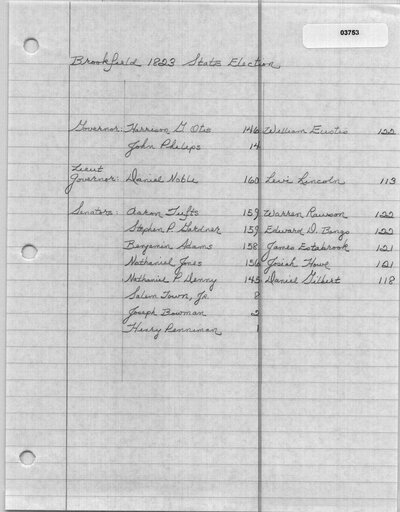 03753
Brookfield 1823 State Election
Governor: Harrison G Otis 146 William Eustis 122
John Phelps 14
Lieut
Governor: Daniel Noble 160 Levi Lincoln 113
Senators: Aaron Tufts 159 Warren Rawson 122
Stephen P Gardner 159 Edward D. Bangs 122
Benjamin Adams 158 James Estabrook 121
Nathaniel Jones 156 Josiah Howe 121
Nathaniel P Denny 145 Daniel Gilbert 118
Salem Town, Jr. 8
Joseph Bowman 2
Henry Penniman 1